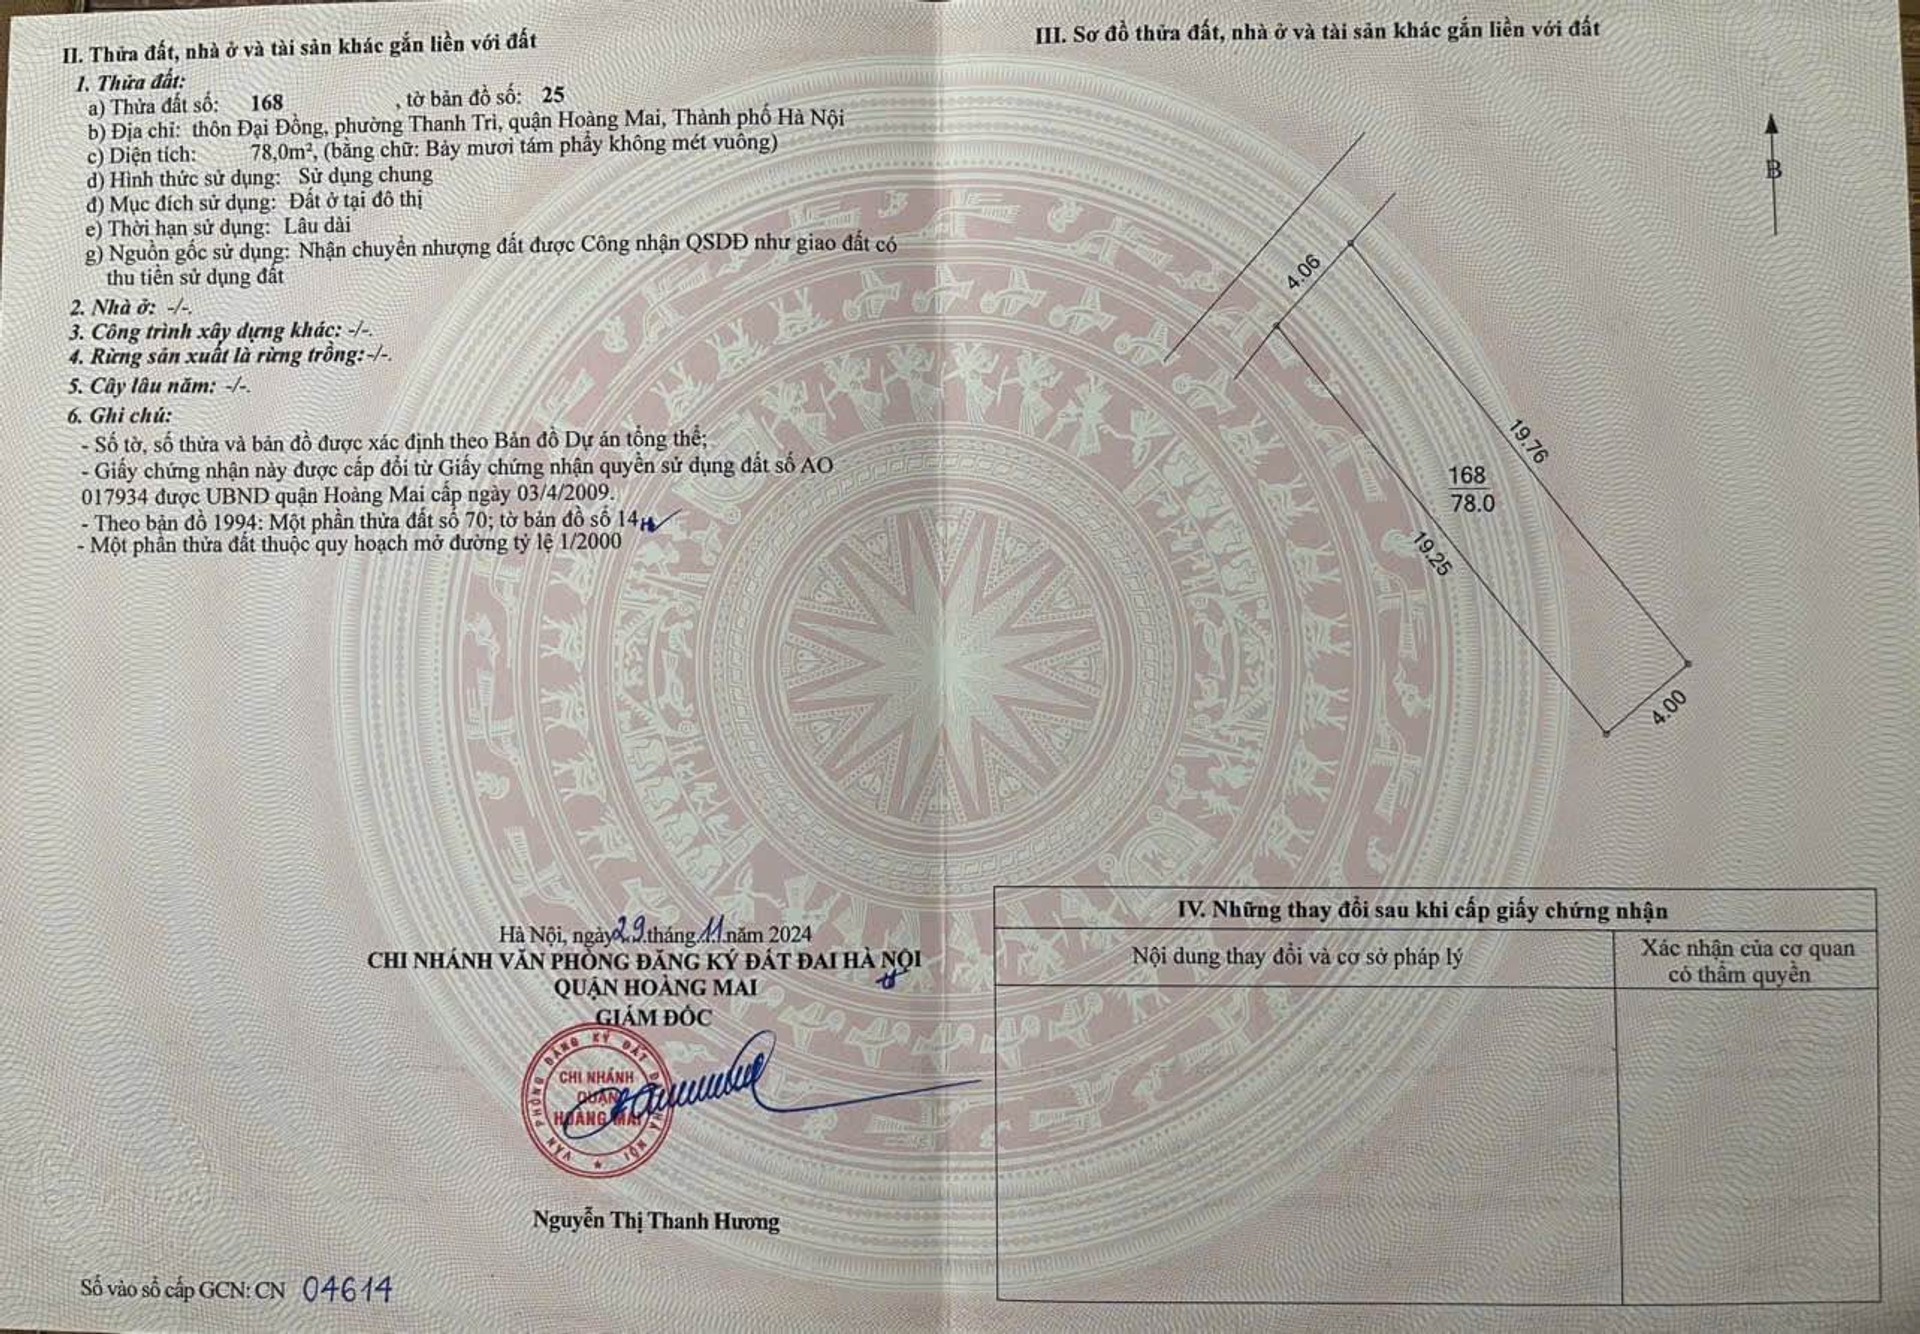 II. Thửa đất, nhà ở và tài sản khác gắn liền với đất
1. Thửa đất:
a) Thửa đất số: 168 , tờ bản đồ số: 25
b) Địa chỉ: thôn Đại Đồng, phường Thanh Trì, quận Hoàng Mai, Thành phố Hà Nội
c) Diện tích: 78,0m², (bằng chữ: Bảy mươi tám phẩy không mét vuông)
d) Hình thức sử dụng: Sử dụng chung
đ) Mục đích sử dụng: Đất ở tại đô thị
e) Thời hạn sử dụng: Lâu dài
g) Nguồn gốc sử dụng: Nhận chuyển nhượng đất được Công nhận QSDĐ như giao đất có
thu tiền sử dụng đất
2. Nhà ở: -/-.
3. Công trình xây dựng khác: -/-.
4. Rừng sản xuất là rừng trồng:-/-.
5. Cây lâu năm: -/-.
6. Ghi chú:
- Số tờ, số thửa và bản đồ được xác định theo Bản đồ Dự án tổng thể;
- Giấy chứng nhận này được cấp đổi từ Giấy chứng nhận quyền sử dụng đất số AO
017934 được UBND quận Hoàng Mai cấp ngày 03/4/2009.
- Theo bản đồ 1994: Một phần thửa đất số 70; tờ bản đồ số 14
- Một phần thửa đất thuộc quy hoạch mở đường tỷ lệ 1/2000
Hà Nội, ngày 29 tháng 11 năm 2024
CHI NHÁNH VĂN PHÒNG ĐĂNG KÝ ĐẤT ĐAI HÀ NỘI
QUẬN HOÀNG MAI
GIÁM ĐỐC
VĂN PHÒNG ĐĂNG KÝ ĐẤT ĐAI HÀ NỘI
CHI NHÁNH
QUẬN
HOÀNG MAI
Nguyễn Thị Thanh Hương
Số vào sổ cấp GCN: CN 04614
III. Sơ đồ thửa đất, nhà ở và tài sản khác gắn liền với đất
B
4.06
19.76
168
78.0
19.25
4.00
IV. Những thay đổi sau khi cấp giấy chứng nhận
Nội dung thay đổi và cơ sở pháp lý
Xác nhận của cơ quan
có thẩm quyền